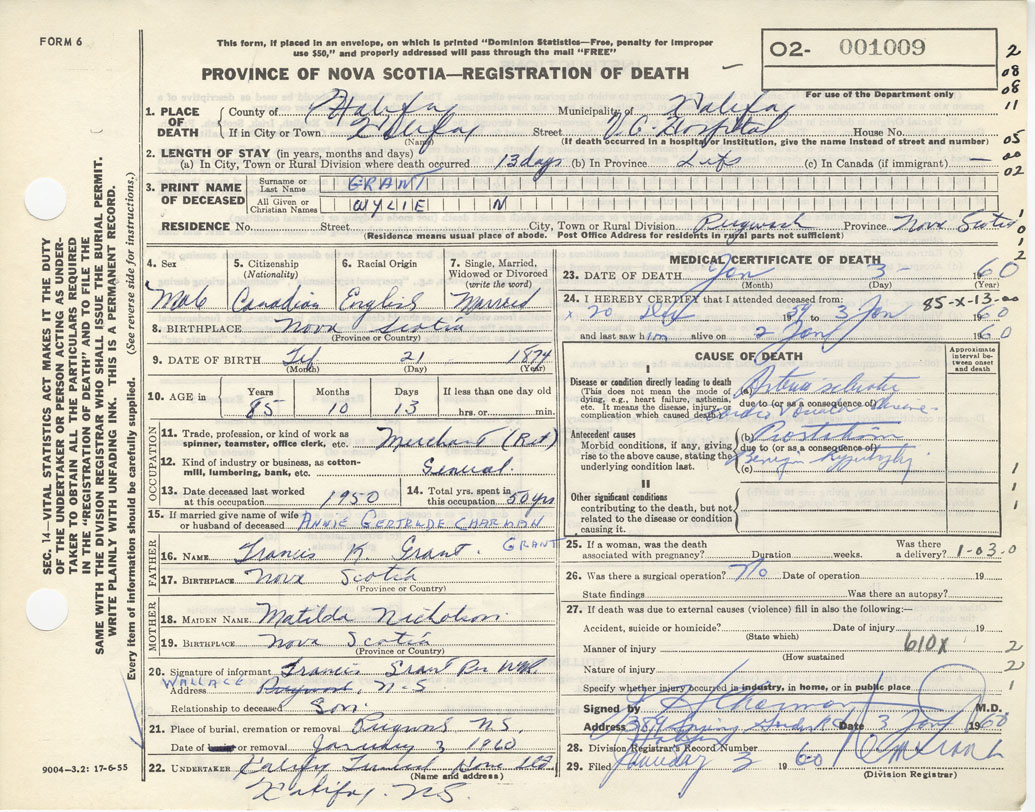 FORM 6
This form, if placed in an envelope, on which is printed "Dominion Statistics—Free, penalty for improper
use $50," and properly addressed will pass through the mail "FREE"
PROVINCE OF NOVA SCOTIA—REGISTRATION OF DEATH
02- 001009
For use of the Department only
2
08
08
11
05
00
02
1. PLACE OF DEATH
County of Halifax Municipality of Halifax
If in City or Town Halifax Street V.G. Hospital House No.
(Name) (If death occurred in a hospital or institution, give the name instead of street and number)
2. LENGTH OF STAY (in years, months and days)
(a) In City, Town or Rural Division where death occurred 13 days (b) In Province Life (c) In Canada (if immigrant) —
3. PRINT NAME OF DECEASED
Surname or Last Name GRANT
All Given or Christian Names WYLIE N
RESIDENCE No. Street City, Town or Rural Division Pugwash Province Nova Scotia
(Residence means usual place of abode. Post Office Address for residents in rural parts not sufficient)
1
0
1
2
SEC. 14—VITAL STATISTICS ACT MAKES IT THE DUTY
OF THE UNDERTAKER OR PERSON ACTING AS UNDER-
TAKER TO OBTAIN ALL THE PARTICULARS REQUIRED
IN THE "REGISTRATION OF DEATH" AND TO FILE THE
SAME WITH THE DIVISION REGISTRAR WHO SHALL ISSUE THE BURIAL PERMIT.
WRITE PLAINLY WITH UNFADING INK. THIS IS A PERMANENT RECORD.
Every item of information should be carefully supplied. (See reverse side for instructions.)
4. Sex
Male
5. Citizenship (Nationality)
Canadian
6. Racial Origin
English
7. Single, Married, Widowed or Divorced (write the word)
Married
8. BIRTHPLACE Nova Scotia
(Province or Country)
9. DATE OF BIRTH Feb 21 1874
(Month) (Day) (Year)
10. AGE in
Years 85
Months 10
Days 13
If less than one day old
hrs. or min.
OCCUPATION
11. Trade, profession, or kind of work as spinner, teamster, office clerk, etc. Merchant (Ret)
12. Kind of industry or business, as cotton-mill, lumbering, bank, etc. General
13. Date deceased last worked at this occupation 1950
14. Total yrs. spent in this occupation 50 yrs
15. If married give name of wife or husband of deceased ANNIE GERTRUDE CHARMAN GRANT
FATHER
16. NAME Francis K Grant.
17. BIRTHPLACE Nova Scotia
(Province or Country)
MOTHER
18. MAIDEN NAME Matilda Nicholson
19. BIRTHPLACE Nova Scotia
(Province or Country)
20. Signature of informant Francis Grant Per
WALLACE
Address N.S
Relationship to deceased Son.
21. Place of burial, cremation or removal N.S.
Date of burial or removal January 3 1960
22. UNDERTAKER Halifax Funeral Home Ltd
(Name and address)
Halifax, N.S.
9004—3.2: 17-6-55
MEDICAL CERTIFICATE OF DEATH
23. DATE OF DEATH Jan 3 1960
(Month) (Day) (Year)
24. I HEREBY CERTIFY that I attended deceased from: 85-X-13-00
x 20 Dec 1959 to 3 Jan 1960
and last saw him alive on 2 Jan 1960
CAUSE OF DEATH
Approximate interval between onset and death
I
Disease or condition directly leading to death
(This does not mean the mode of
dying, e.g., heart failure, asthenia,
etc. It means the disease, injury, or
complication which caused death.)
(a) due to (or as a consequence of)
Antecedent causes
Morbid conditions, if any, giving
rise to the above cause, stating the
underlying condition last.
(b) Prostatism
due to (or as a consequence of)
(c) Benign hypertrophy
II
Other significant conditions
contributing to the death, but not
related to the disease or condition
causing it.
1
1
1
1
25. If a woman, was the death associated with pregnancy? Duration weeks. Was there a delivery? 1-03-0
26. Was there a surgical operation? No Date of operation 19
State findings Was there an autopsy?
27. If death was due to external causes (violence) fill in also the following:—
Accident, suicide or homicide? Date of injury 19
(State which)
Manner of injury 610X
(How sustained)
Nature of injury
Specify whether injury occurred in industry, in home, or in public place
2
2
1
Signed by M.D.
Address 389 Spring Garden Rd Date 3 Jan 1960
Halifax
28. Division Registrar's Record Number
29. Filed January 3 1960
(Division Registrar)